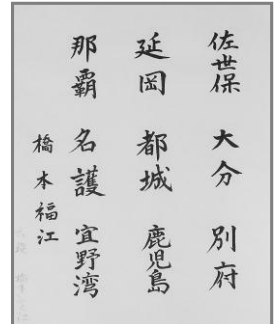 佐世保 大分 別府
延岡 都城 鹿児島
那覇 名護 宜野湾
橋本福江